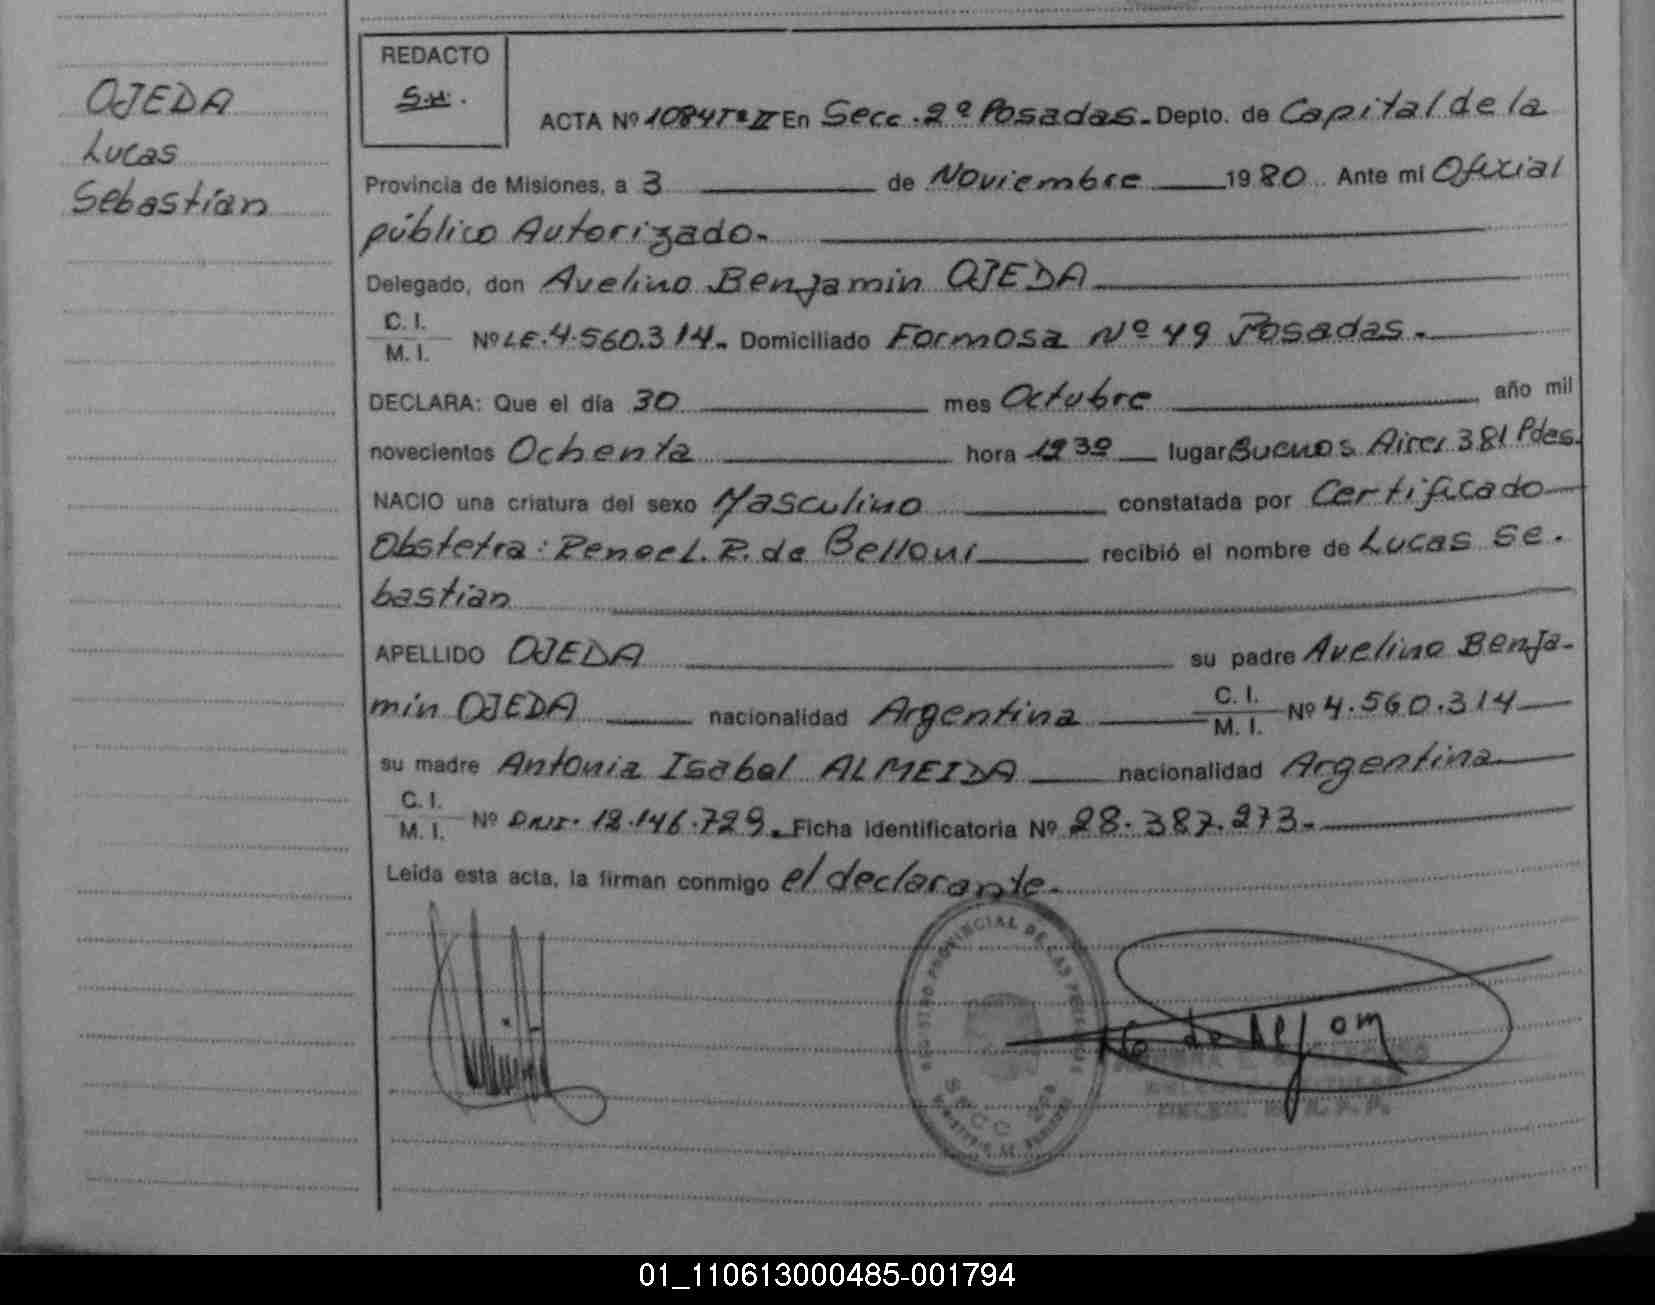 OJEDA
Lucas
Sebastián
REDACTO
S.H.
ACTA Nº 1084 Tº II En Secc. 2º Posadas.- Depto. de Capital de la
Provincia de Misiones, a 3 de Noviembre 1980 Ante mi Oficial
público Autorizado.
Delegado, don Avelino Benjamin OJEDA
C. I.
M. I. Nº LE. 4.560.314. Domiciliado Formosa Nº 49 Posadas.
DECLARA: Que el día 30 mes Octubre año mil
novecientos Ochenta hora 1930 lugar Buenos Aires 381 Pdas.
NACIO una criatura del sexo Masculino constatada por Certificado
Obstetra: R. de Belloni recibió el nombre de Lucas Se.
bastián
APELLIDO OJEDA su padre Avelino Benja-
min OJEDA nacionalidad Argentina C. I. M. I. Nº 4.560.314
su madre Antonia Isabel ALMEIDA nacionalidad Argentina
C. I.
M. I. Nº DNI. 12.146.729. Ficha identificatoria Nº 28.387.273.
Leída esta acta, la firman conmigo el declarante.
REGISTRO PROVINCIAL DE LAS PERSONAS
SECC 2da
01_110613000485-001794